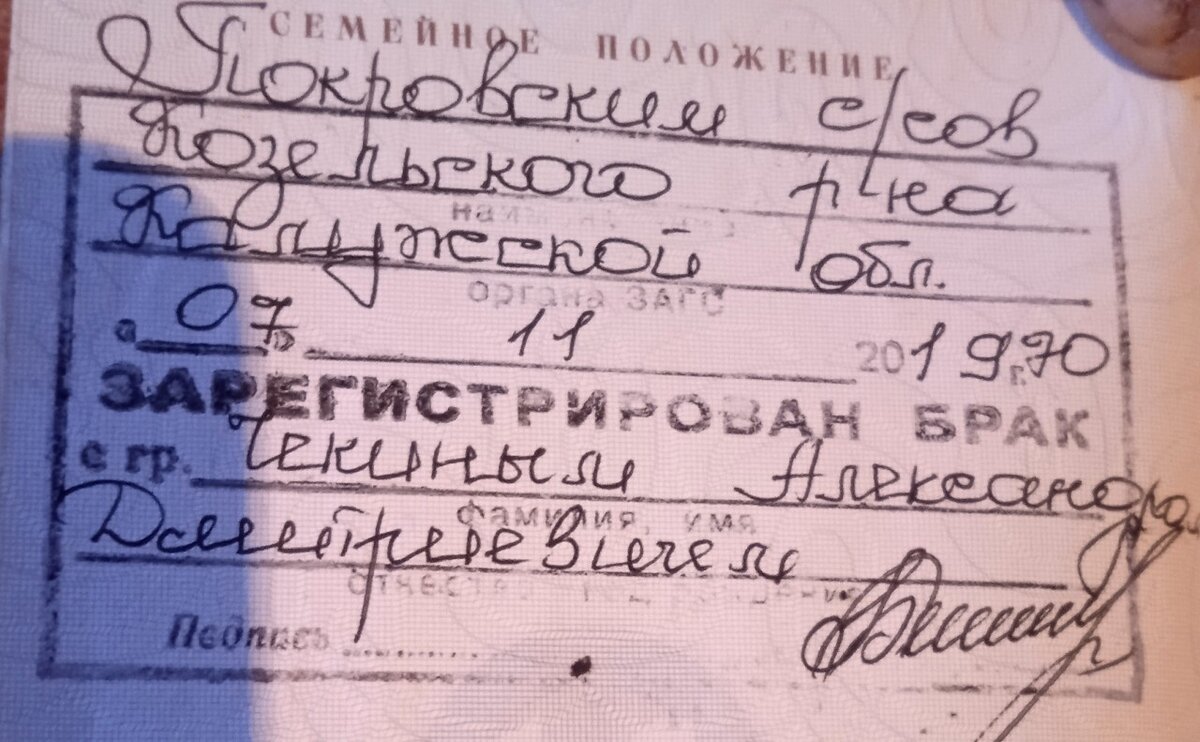 СЕМЕЙНОЕ ПОЛОЖЕНИЕ
Покровским с/сов
Козельского р-на
Калужской обл.
органа ЗАГС
07 11 2019 г. 70
ЗАРЕГИСТРИРОВАН БРАК
с гр. Чекиным Александром
фамилия, имя
Дмитриевичем
Подпись